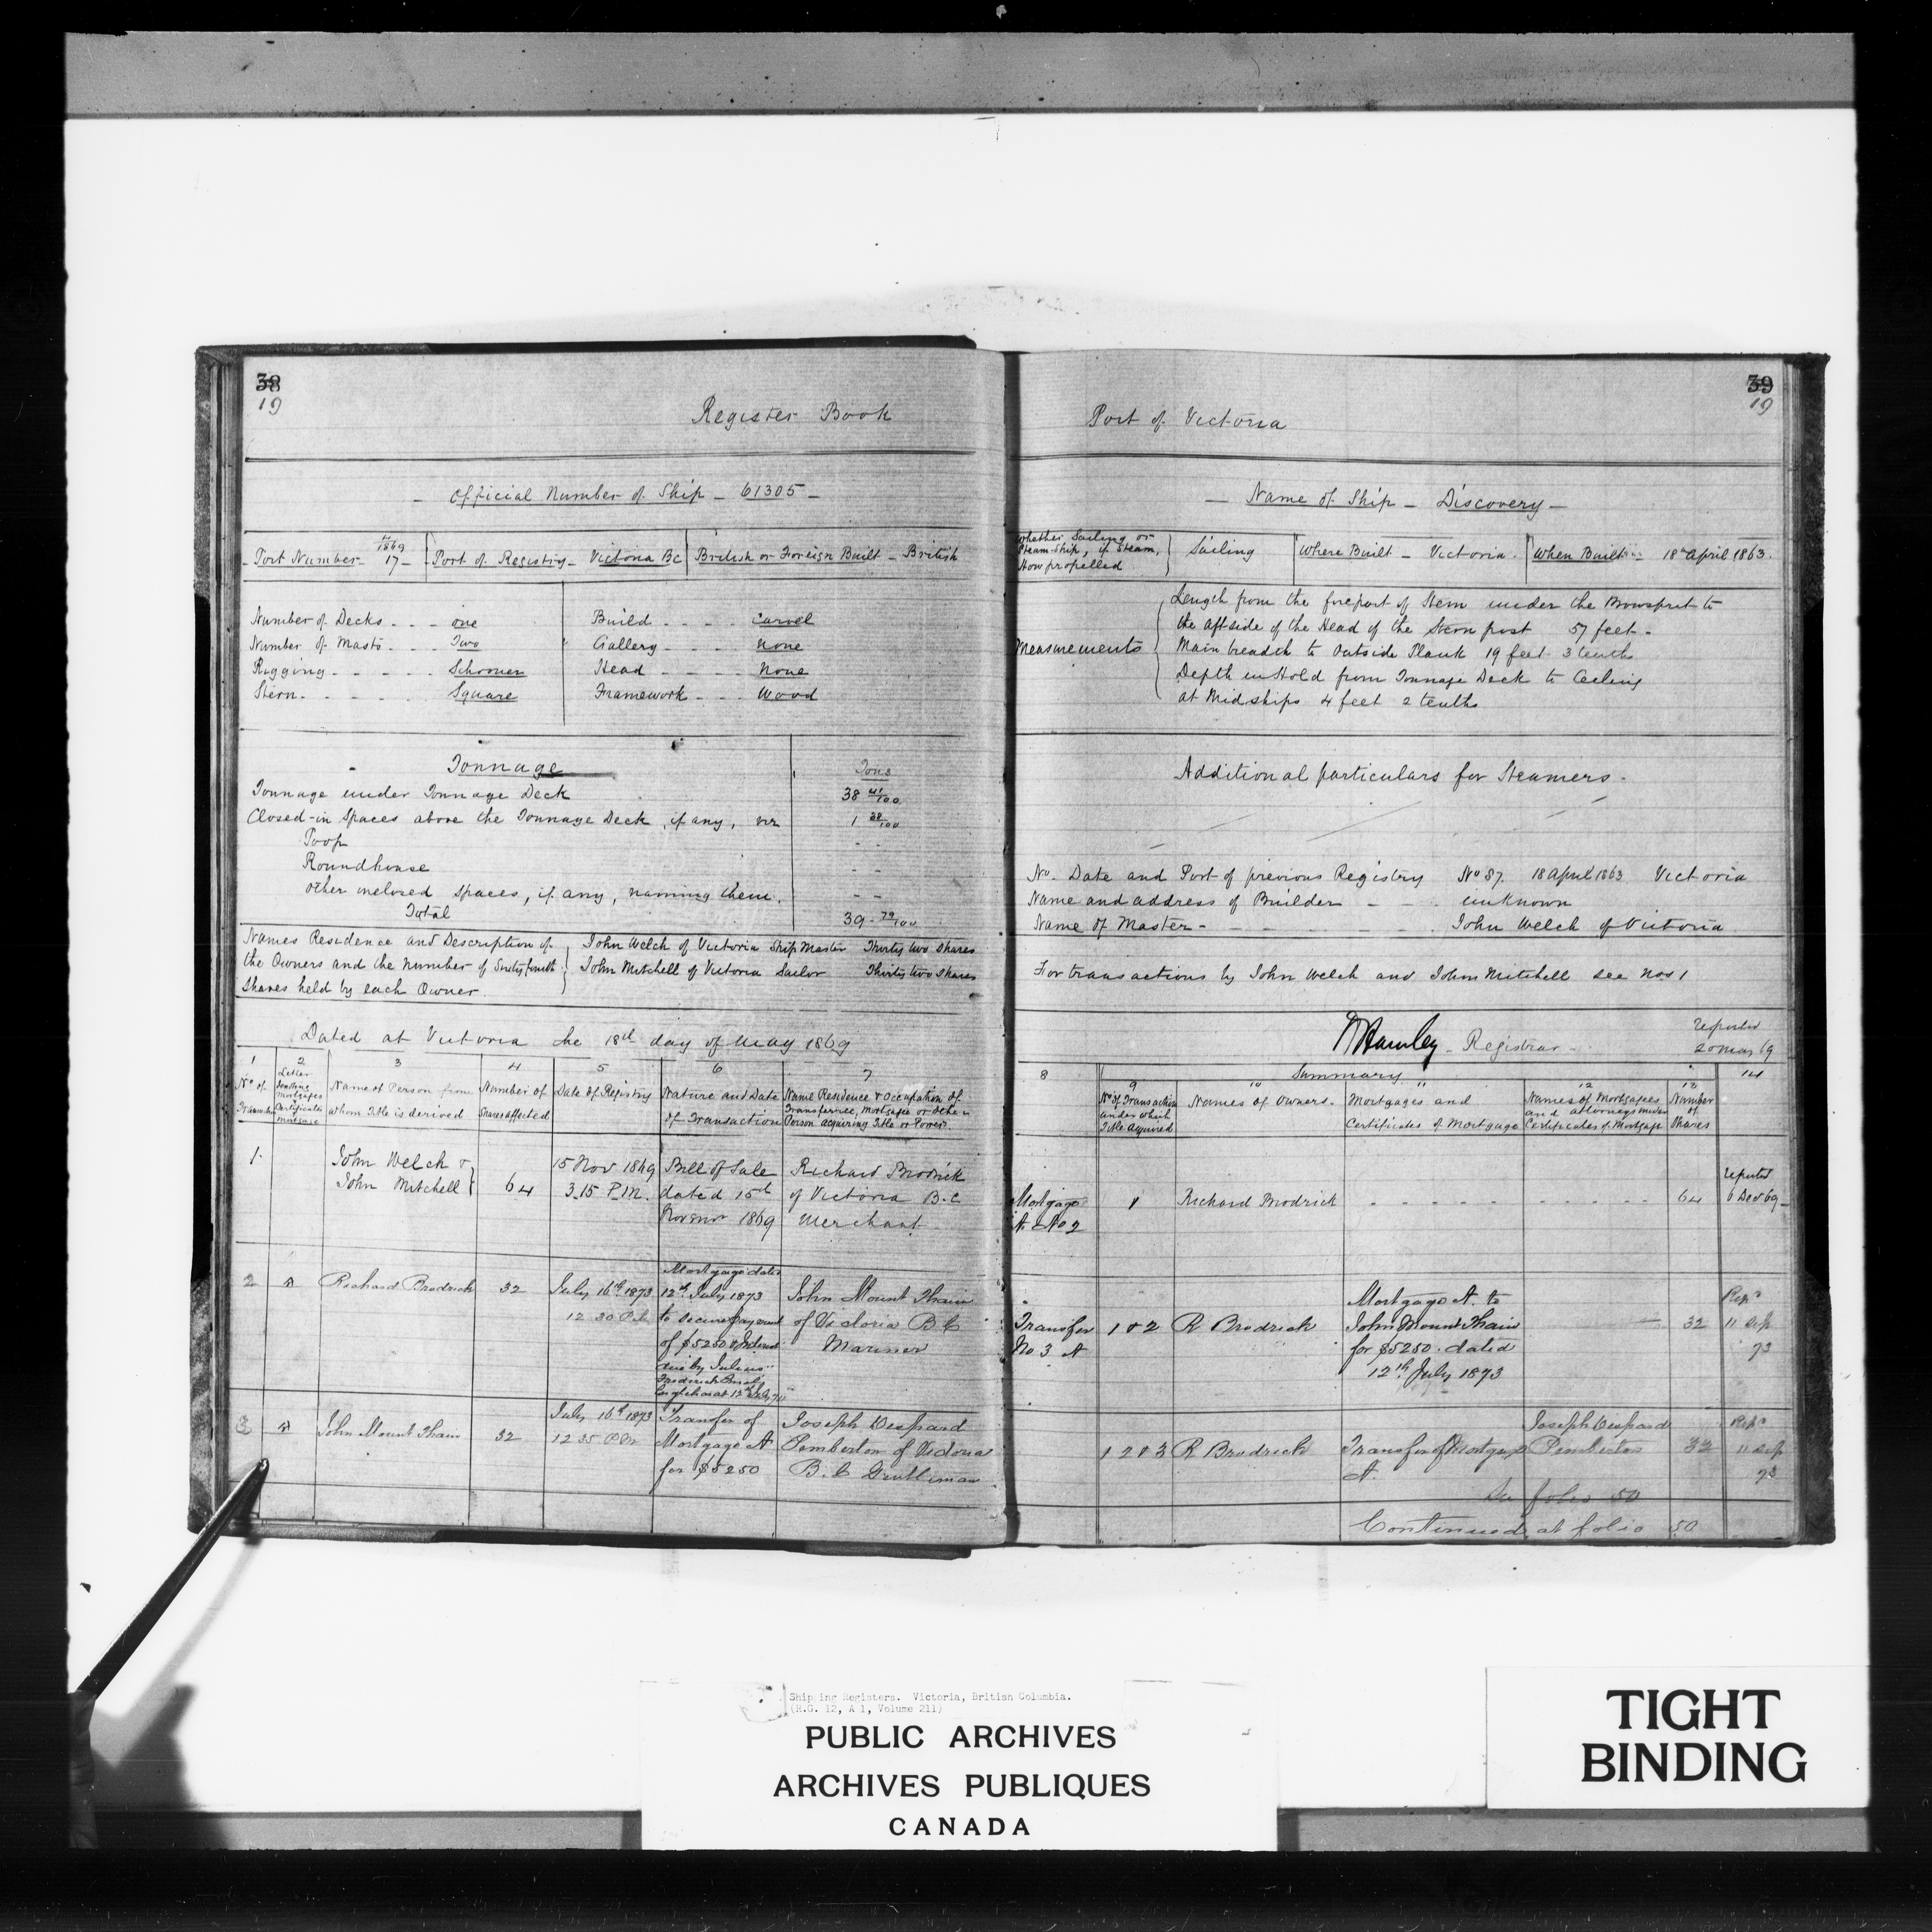 38
19
Register Book
Official Number of Ship - 61305 -
Port Number - 1869 17 - Port of Registry - Victoria BC British or Foreign Built - British
Number of Decks - - - one
Number of Masts - - - Two
Rigging - - - - - Schooner
Stern - - - - - - Square
Build - - - - Carvel
Gallery - - - none
Head - - - - None
Framework - - - Wood
Tonnage
Tons
Tonnage under Tonnage Deck 38 41/100
Closed-in Spaces above the Tonnage Deck, if any, viz 1 38/100
Poop - -
Roundhouse - -
Other inclosed spaces, if any, naming them. - -
Total 39 - 79/100
Names Residence and Description of
the Owners and the Number of Sixtyfourth
Shares held by each Owner.
John Welch of Victoria Ship Master Thirty two shares
John Mitchell of Victoria Sailor Thirty two shares
Dated at Victoria the 18th day of May 1869
1 2 3 4 5 6 7
No. of
Transaction
Letter
denoting
Mortgages
Certificates
Mortgage
Name of Person from
whom Title is derived
Number of
Shares affected
Date of Registry
Nature and Date
of Transaction
Name Residence & Occupation of
Transferree, Mortgagee or other
Person acquiring Title or Power
1.
John Welch &
John Mitchell
64
15 Nov 1869
3.15 P.M.
Bill of Sale
dated 15th
Novemr 1869
Richard Brodrick
of Victoria B.C
Merchant
2 A Richard Brodrick 32
July 16th 1873
12 30 P.M.
Mortgage dated
12th July 1873
to secure payment
of $5250 & Interest
due by Julius
Frederick
at 12
John Mount Thain
of Victoria B.C
Mariner
3 A John Mount Thain 32
July 16th 1873
12 35 P.M.
Transfer of
Mortgage A
for $5250
Joseph Despard
Pemberton of Victoria
B.C Gentleman
39
19
Port of Victoria
- Name of Ship - Discovery -
Whether Sailing or
Steam-ship, if Steam,
How propelled
Sailing Where Built - Victoria. When Built - 18th April 1863.
Measurements
Length from the forepart of Stem under the Bowsprit to
the aftside of the Head of the Stern post 57 feet -
Main breadth to Outside Plank 19 feet 3 tenths
Depth in Hold from Tonnage Deck to Ceiling
at Midships 4 feet 2 tenths
Additional particulars for Steamers -
No. Date and Port of previous Registry No 87. 18 April 1863 Victoria
Name and address of Builder - - - unknown
Name of Master - - - - - - - John Welch of Victoria
For transactions by John Welch and John Mitchell see No. 1
W Hamley - Registrar
reported
20 May 69
8
Summary
9 10 11 12 13 14
No. of Transaction
under which
Title Acquired
Names of Owners.
Mortgages and
Certificates of Mortgage
Names of Mortgagees
and attorneys under
Certificates of Mortgage
Number
of
Shares
Mortgage
A. No 2
1 Richard Brodrick - - - - - - - - - - 64
reported
6 Dec 69
Transfer
No 3 A
1 & 2 R Brodrick
Mortgage A. to
John Mount Thain
for $5250. dated
12th July 1873
32
Repd
11 Sep
73
1 2 & 3 R Brodrick
Transfer of Mortgage
A.
Joseph Despard
Pemberton
32
Repd
11 Sep
73
See folio 50
Continued at folio 50
Shipping Registers. Victoria, British Columbia.
(R.G. 12, A 1, Volume 211)
PUBLIC ARCHIVES
ARCHIVES PUBLIQUES
CANADA
TIGHT
BINDING